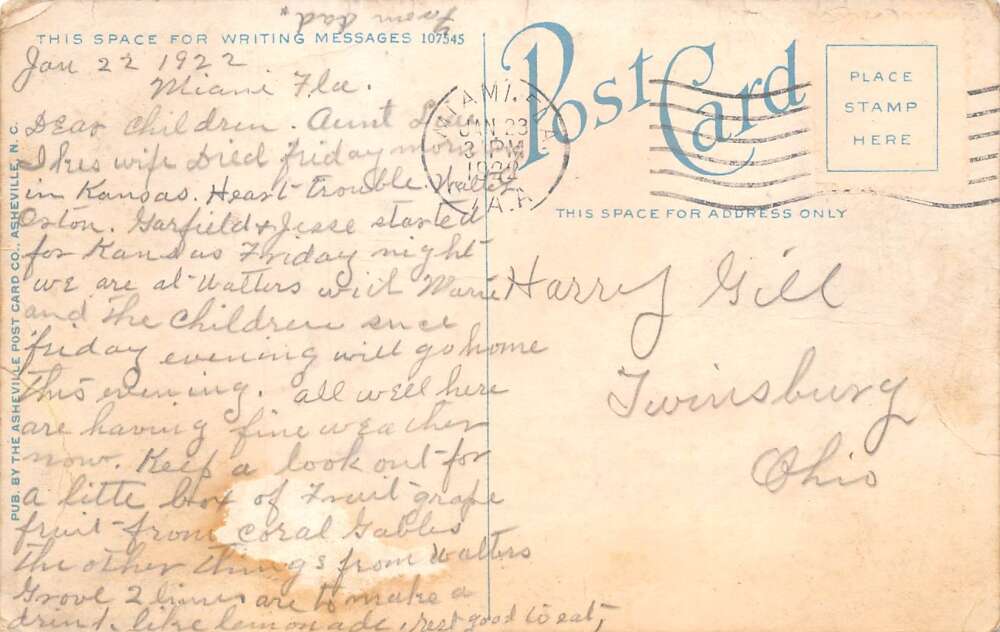 From dad.
THIS SPACE FOR WRITING MESSAGES 107545
Jan 22 1922
Miami Fla.
Dear Children. Aunt
Ikes wife Died friday morn
in Kansas. Heart trouble. Walter
Orton. Garfield & Jesse started
for Kansas Friday night
we are at Watters with Marie
and The children since
friday evening will go home
This evening. all well here
are having fine weather
now. Keep a look out for
a litte box of Fruit grape
fruit from Coral Gables
The other things from Watters
Grove 2 limes are to make a
drink like lemonade, rest good to eat,
PUB. BY THE ASHEVILLE POST CARD CO., ASHEVILLE, N. C.
Post Card
MIAMI, FLA.
JAN 23
3 PM
1922
PLACE
STAMP
HERE
THIS SPACE FOR ADDRESS ONLY
Harry Gill
Twinsburg
Ohio